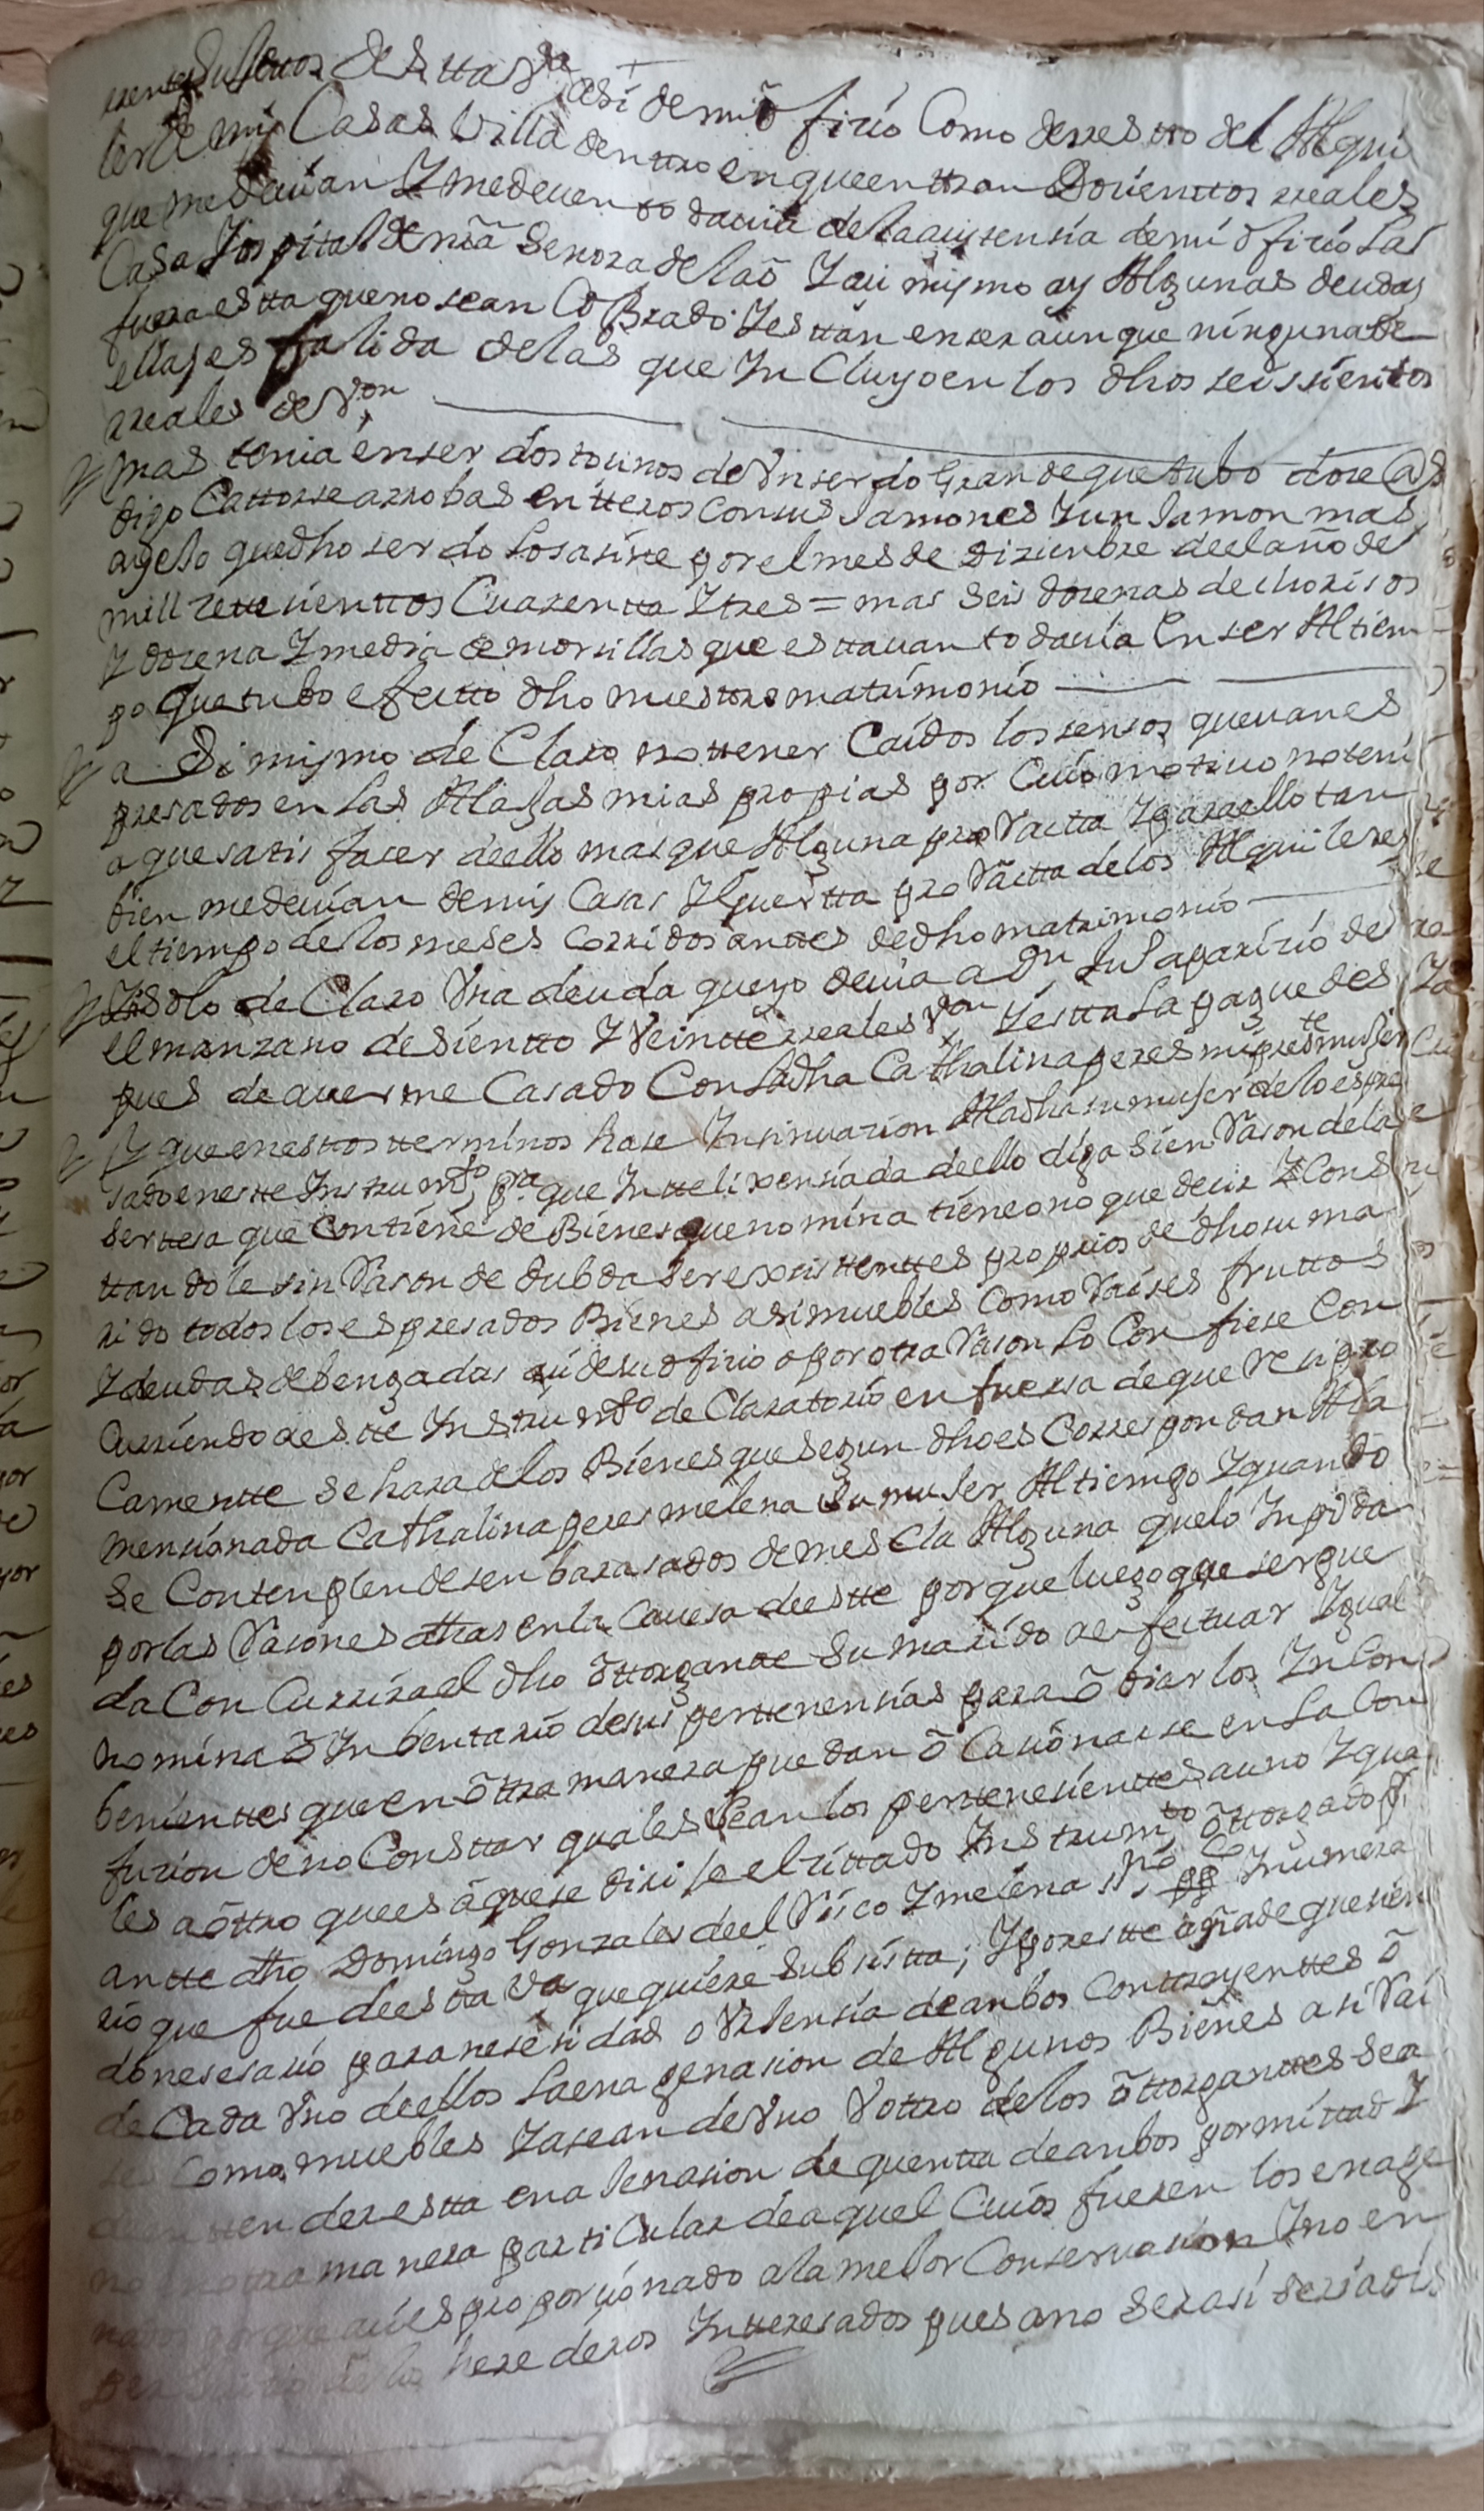 des tta Va asi de mi ofizio Como de resto del Alqui
ler de mis Casas Villa dentro en que entran Dosienttos rreales
que me deuian Y me deuen todauia de la ausensia de mi ofizio Las
Casa Hospital de nra Senora de la o Y aui mismo ay Algunas deudas
fuera estta que no sean CoBrado Y esttan en ser aunque ninguna de
ellas es falida de las que Yn Cluyo en los dhos seissientos
rreales de Von
Y mas tenia en ser dos tosinos de Vn serdo Grande que tubo dose @s
digo Cattorse arrobas entteros con sus Jamones Y un Jamon mas
a pelo que dho serdo Lo sasine por el mes de Dizienbre de el año de
mill settesienttos Cuarentta Y tres = mas Seis dosenas de chorisos
Y dosena Y media de morsillas que esttauan todauia En ser Al tiem
po que tubo efectto dho nuesttro matrimonio
a Si mismo de Claro no ttener Caidos los sensos que uan es
presados en Las Alajas mias propias por Cuio motiuo no teni
a que satisfaser de ello mas que Alguna pro Ratta Y para ello tan
bien me deuian de mis Casas Y Guertta pro Ratta de los Alquileres
el tiempo de los meses corridos anttes de dho matrimonio
Y solo de Claro Vna deuda que yo deuia a Dn Juo aparizio de
el manzano de sientto Y Veintte rreales Von Y estta La pague des
pues de auerme Casado Con La dha Cathalina peres mi presste muger
Y que en esttos tterminos hase Ynsinuazion A la dha su muger de lo espre
sado en estte Ynstrumto pra que Yntteligensiada de ello diga si en Rason de la
serttesa que Conttiene de Bienes que nomina tiene o no que desir Y Cons
ttandole sin Rason de dubda ser existtenttes propios de dho su ma
rido todos los espresados Bienes asi muebles como Raises fruttos
Y deudas debengadas asi de su ofizio o por otra Rason Lo Confiese Con
Curriendo a estte Ynstrumto de Claratorio en fuersa de que Resipro
Camentte se hara de los Bienes que segun dho es Correspondan A la
mensionada Cathalina peres melena Su muger Al tiempo Y quando
Se Contenplen desenbarasados de mescla Alguna que lo Ynpida
por las Rasones dthas en la Cauesa de estte por que luego que ser pue
da Con Currira el dho ottorgantte Su marido a efectuar Ygual
nomina o Ynbentario de sus perttenensias para obiar los Yncon
benienttes que en ottra manera puedan o Casionarse en La Con
fuzion de no Consttar quales sean los perttenesienttes a uno Y qua
les a ottro que es a que se dirije el zittado Ynstrumto ottorgado pr
antte dho Domingo Gonzales de el Risco Y melena ssno pp Ynumera
rio que fue de estta Va que quiere Subsistta; Y por estte añade que sien
do nesesario para nesesidad o Vrjensia de anbos Conttrayenttes o
de Cada Vno de ellos La enagenasion de Algunos Bienes asi Rai
ses Como muebles Ya sean de Vno V ottro de los ottorganttes Sea
enttenderse estta enajenasion de quentta de anbos por mittad Y
no en otra manera particular de aquel Cuios fuesen los enage
nados por que asi es proporsionado a la mejor Conseruasion Y no en
perjuizio de los herederos Ynteresados pues a no Ser asi seria dis